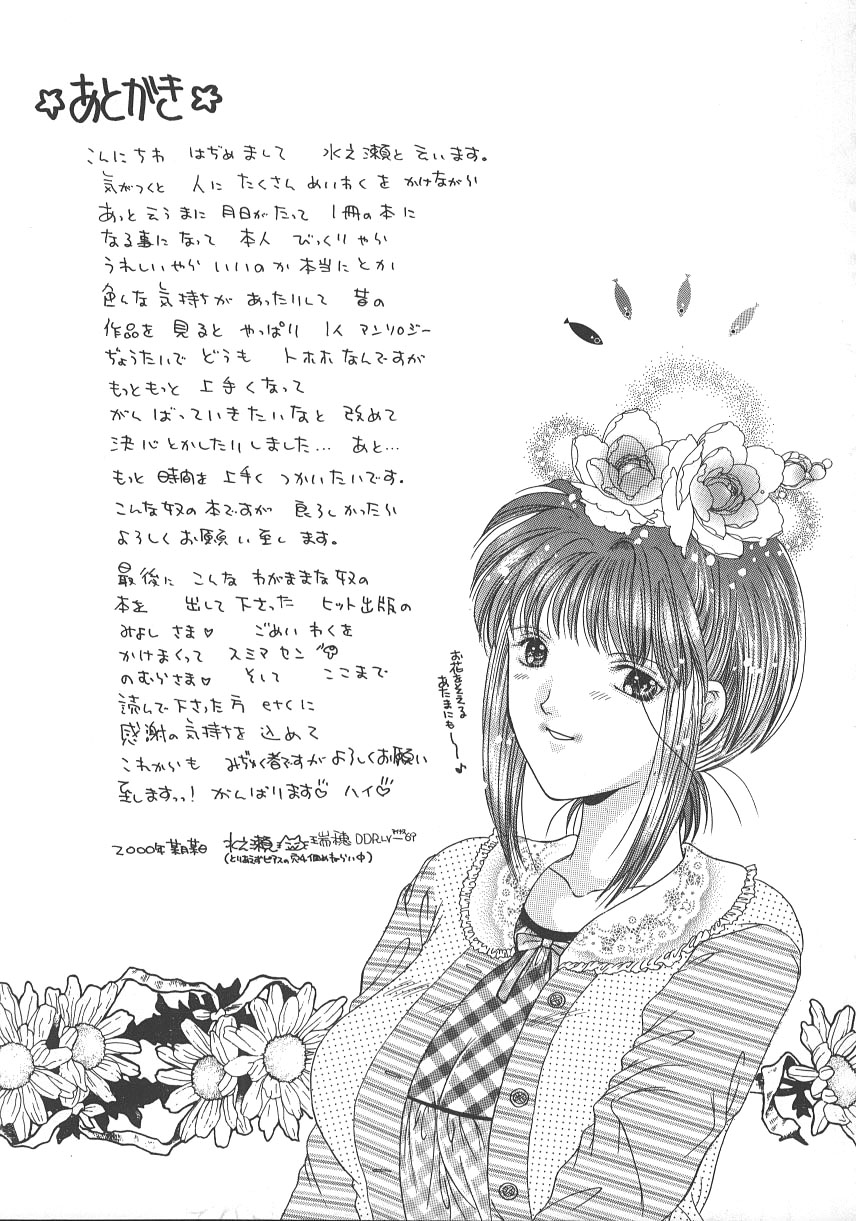 ☆あとがき☆
こんにちわ はぢめまして 水之瀬と云います。
気がつくと 人に たくさん めいわくを かけながら
あっと云うまに 月日がたって 1冊の本に
なる事になって 本人 びっくりやら
うれしいやら いいのか本当にとか
色んな気持ちが あったりして 昔の
作品を 見ると やっぱり 1人 アンソロジー
ぢょうたいで どうも トホホなんですが
もっともっと 上手くなって
がんばっていきたいなと 改めて
決心とかしたりしました… あと…
もっと 時間を 上手く つかいたいです。
こんな奴の本ですが 良ろしかったら
よろしくお願い至します。
最後に こんな わがままな奴の
本を 出して下さった ヒット出版の
みよしさま♡ ごめいわくを
かけまくって スミマセン
のむらさま♡ そして ここまで
読んで下さった方 etcに
感謝の気持ちを 込めて
これからも みぢゅく者ですがよろしくお願い
至しますっ! がんばります♡ ハイ♡
2000年 水之瀬 瑞穂 DDRLV
(とりあえずピアスの穴4個めねらい中)
お花をそえる
あたまにも〜〜♪